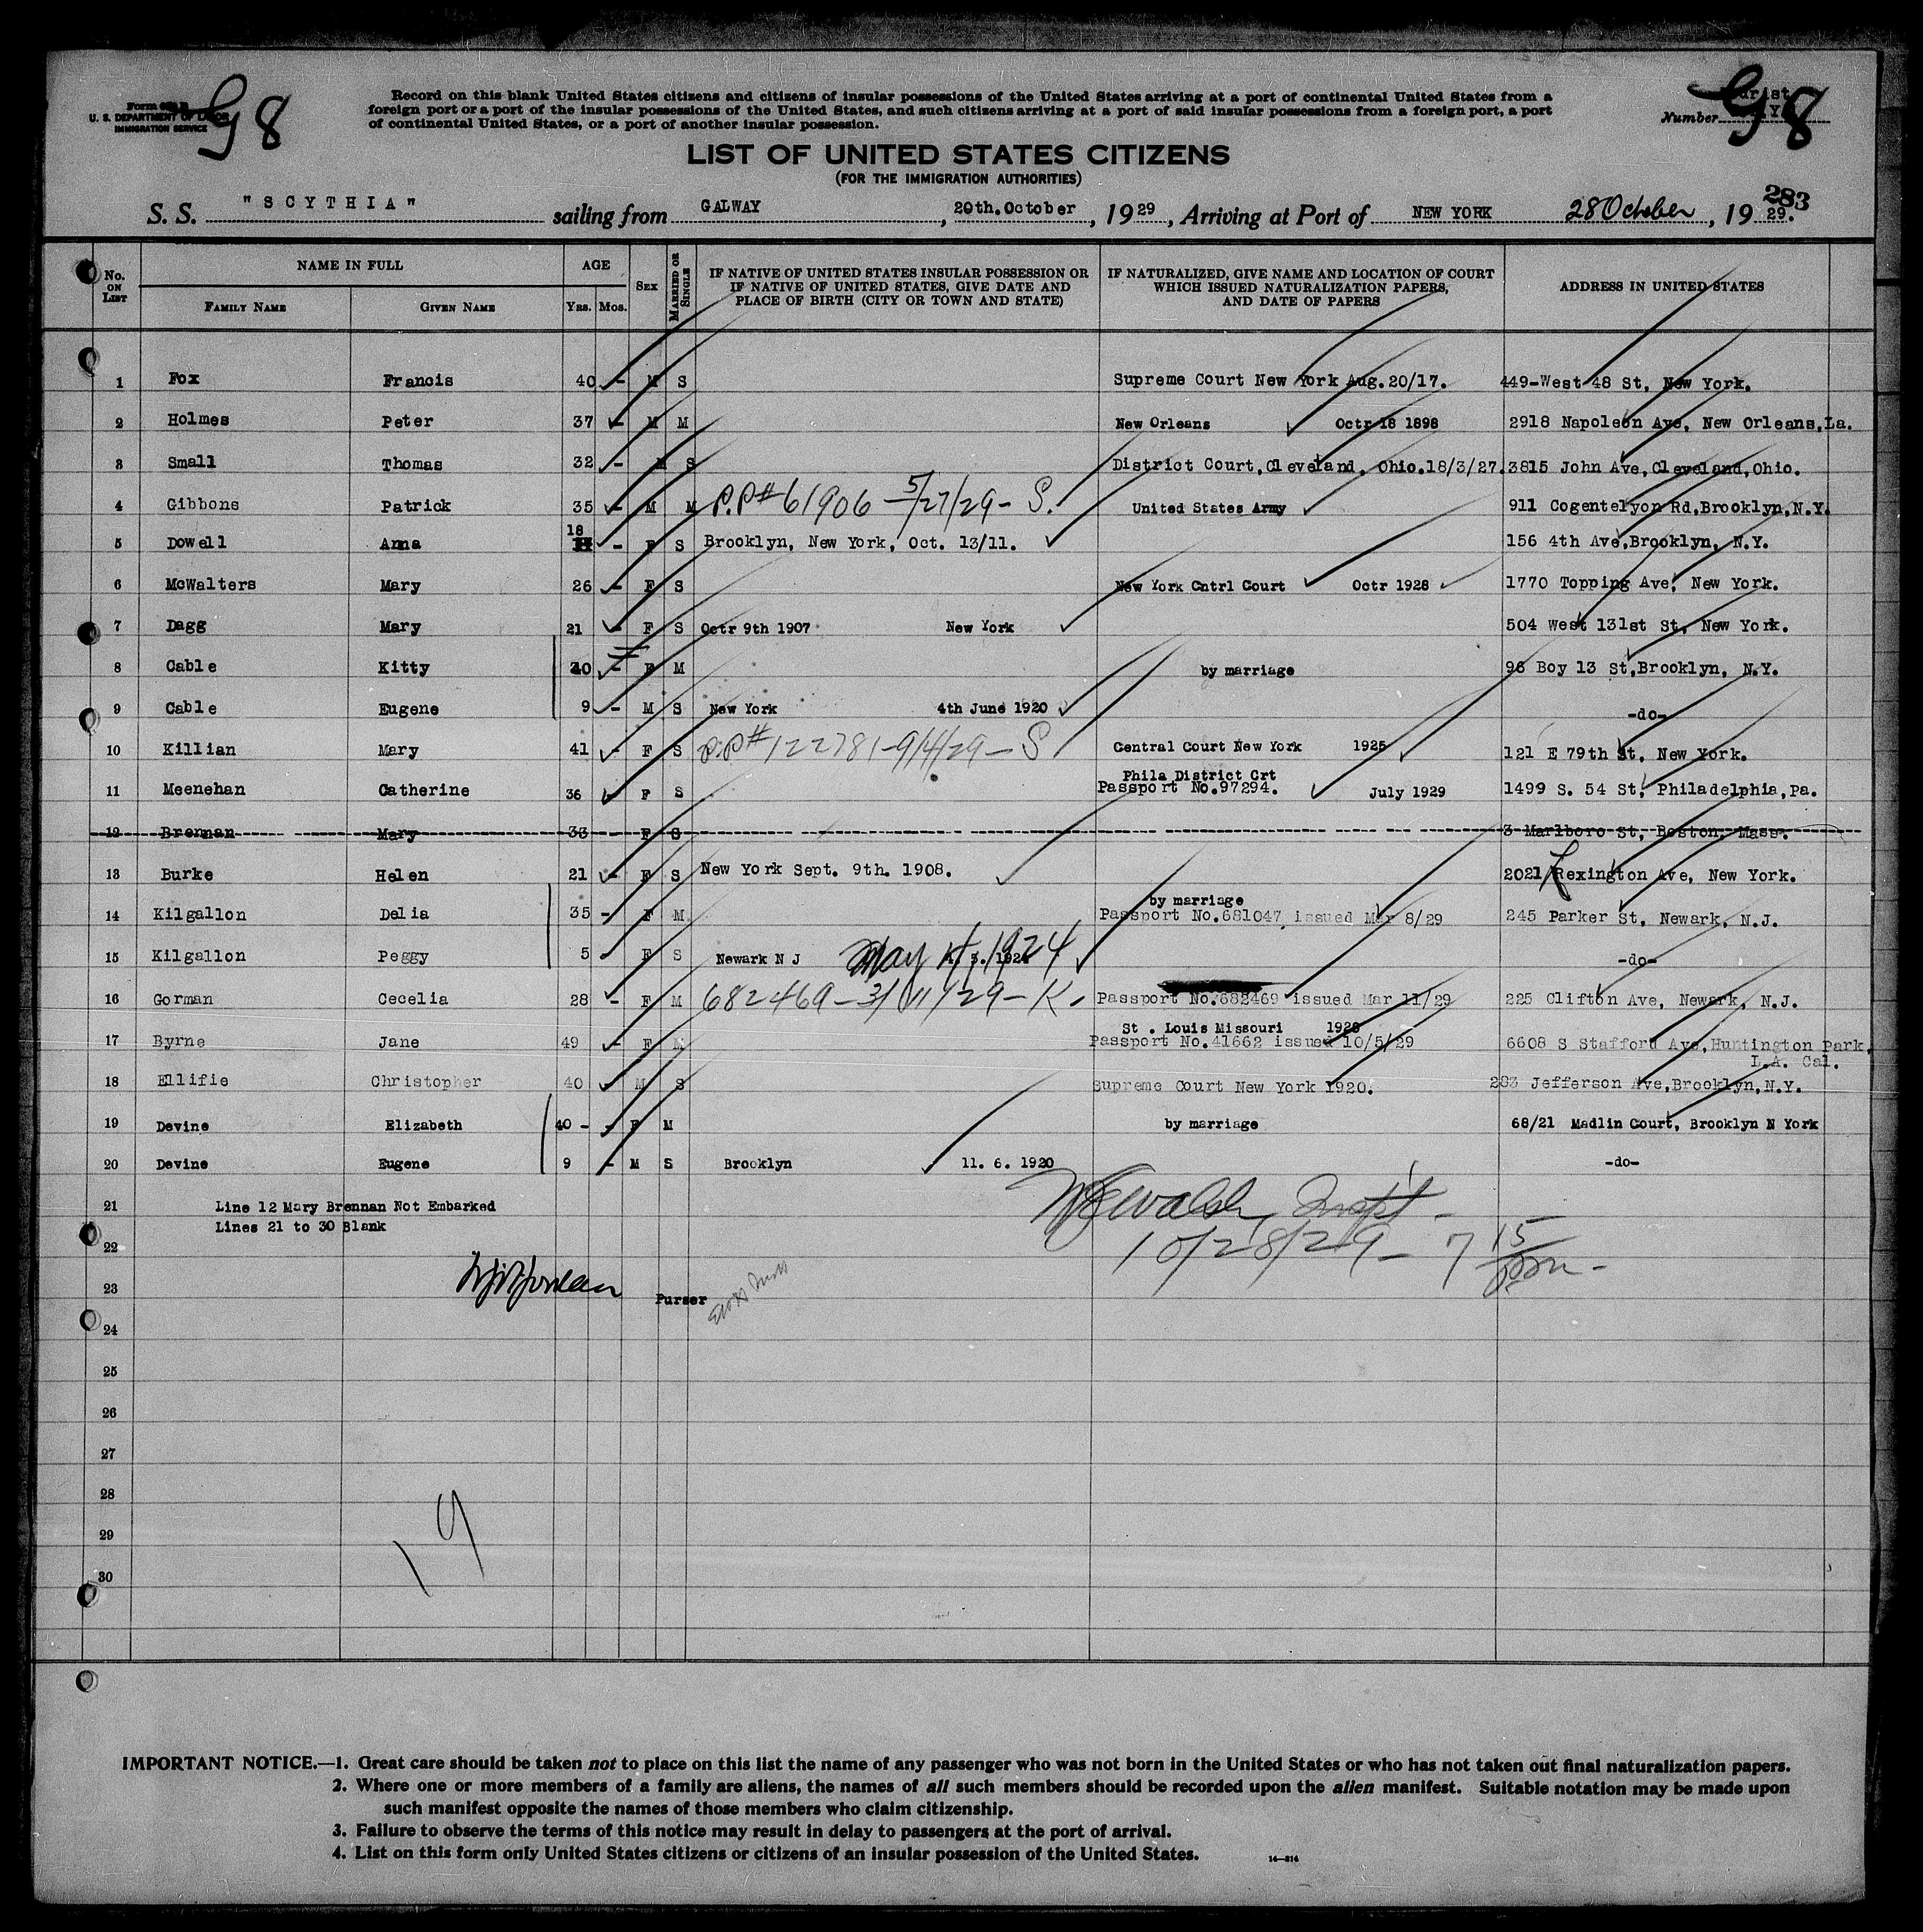 Form 630 B
U. S. DEPARTMENT OF LABOR
IMMIGRATION SERVICE
G 8
Record on this blank United States citizens and citizens of insular possessions of the United States arriving at a port of continental United States from a
foreign port or a port of the insular possessions of the United States, and such citizens arriving at a port of said insular possessions from a foreign port, a port
of continental United States, or a port of another insular possession.
Number
G 8
LIST OF UNITED STATES CITIZENS
(FOR THE IMMIGRATION AUTHORITIES)
283
S. S. "SCYTHIA" sailing from GALWAY, 20th. October, 1929, Arriving at Port of NEW YORK 28 October, 1929.
No. ON LIST NAME IN FULL AGE SEX MARRIED OR SINGLE IF NATIVE OF UNITED STATES INSULAR POSSESSION OR IF NATIVE OF UNITED STATES, GIVE DATE AND PLACE OF BIRTH (CITY OR TOWN AND STATE) IF NATURALIZED, GIVE NAME AND LOCATION OF COURT WHICH ISSUED NATURALIZATION PAPERS, AND DATE OF PAPERS ADDRESS IN UNITED STATES
FAMILY NAME GIVEN NAME YRS. MOS.
1 Fox Francis 40 - M S Supreme Court New York Aug. 20/17. 449-West 48 St, New York.
2 Holmes Peter 37 - M M New Orleans Octr 18 1898 2918 Napoleon Ave, New Orleans, La.
3 Small Thomas 32 - M S District Court, Cleveland, Ohio. 18/3/27. 3815 John Ave, Cleveland, Ohio.
4 Gibbons Patrick 35 - M M P.P# 61906 - 5/27/29 - S. United States Army 911 Cogentelyon Rd, Brooklyn, N.Y.
5 Dowell Anna 18 - F S Brooklyn, New York, Oct. 13/11. 156 4th Ave, Brooklyn, N.Y.
6 McWalters Mary 26 - F S New York Cntrl Court Octr 1928 1770 Topping Ave, New York.
7 Dagg Mary 21 - F S Octr 9th 1907 New York 504 West 131st St, New York.
8 Cable Kitty 40 - F M by marriage 96 Boy 13 St, Brooklyn, N.Y.
9 Cable Eugene 9 - M S New York 4th June 1920 -do-
10 Killian Mary 41 - F S P.P# 122781-9/4/29 - S Central Court New York 1925 121 E 79th St, New York.
Phila District Crt
11 Meenehan Catherine 36 - F S Passport No. 97294. July 1929 1499 S. 54 St, Philadelphia, Pa.
12 Brennan Mary 33 - F S 3 Marlboro St, Boston, Mass.
13 Burke Helen 21 - F S New York Sept. 9th. 1908. 2021 Lexington Ave, New York.
by marriage
14 Kilgallon Delia 35 - F M Passport No. 681047 issued Mar 8/29 245 Parker St, Newark, N.J.
15 Kilgallon Peggy 5 - F S Newark N J May 15, 1924 -do-
16 Gorman Cecelia 28 - F M 682469 - 3/11/29 - K. Passport No. 682469 issued Mar 11/29 225 Clifton Ave, Newark, N.J.
St. Louis Missouri 1928
17 Byrne Jane 49 - F M Passport No. 41662 issued 10/5/29 6608 S Stafford Ave, Huntington Park,
L.A. Cal.
18 Ellifie Christopher 40 - M S Supreme Court New York 1920. 283 Jefferson Ave, Brooklyn, N.Y.
19 Devine Elizabeth 40 - - F M by marriage 68/21 Madlin Court, Brooklyn N York
20 Devine Eugene 9 - M S Brooklyn 11. 6. 1920 -do-
21 Line 12 Mary Brennan Not Embarked
Lines 21 to 30 Blank
Walsh, Inspt -
22
10/28/29 - 7 15 pm -
23 Purser
24
25
26
27
28
29
30
19
IMPORTANT NOTICE.—1. Great care should be taken not to place on this list the name of any passenger who was not born in the United States or who has not taken out final naturalization papers.
2. Where one or more members of a family are aliens, the names of all such members should be recorded upon the alien manifest. Suitable notation may be made upon
such manifest opposite the names of those members who claim citizenship.
3. Failure to observe the terms of this notice may result in delay to passengers at the port of arrival.
4. List on this form only United States citizens or citizens of an insular possession of the United States.
14—214